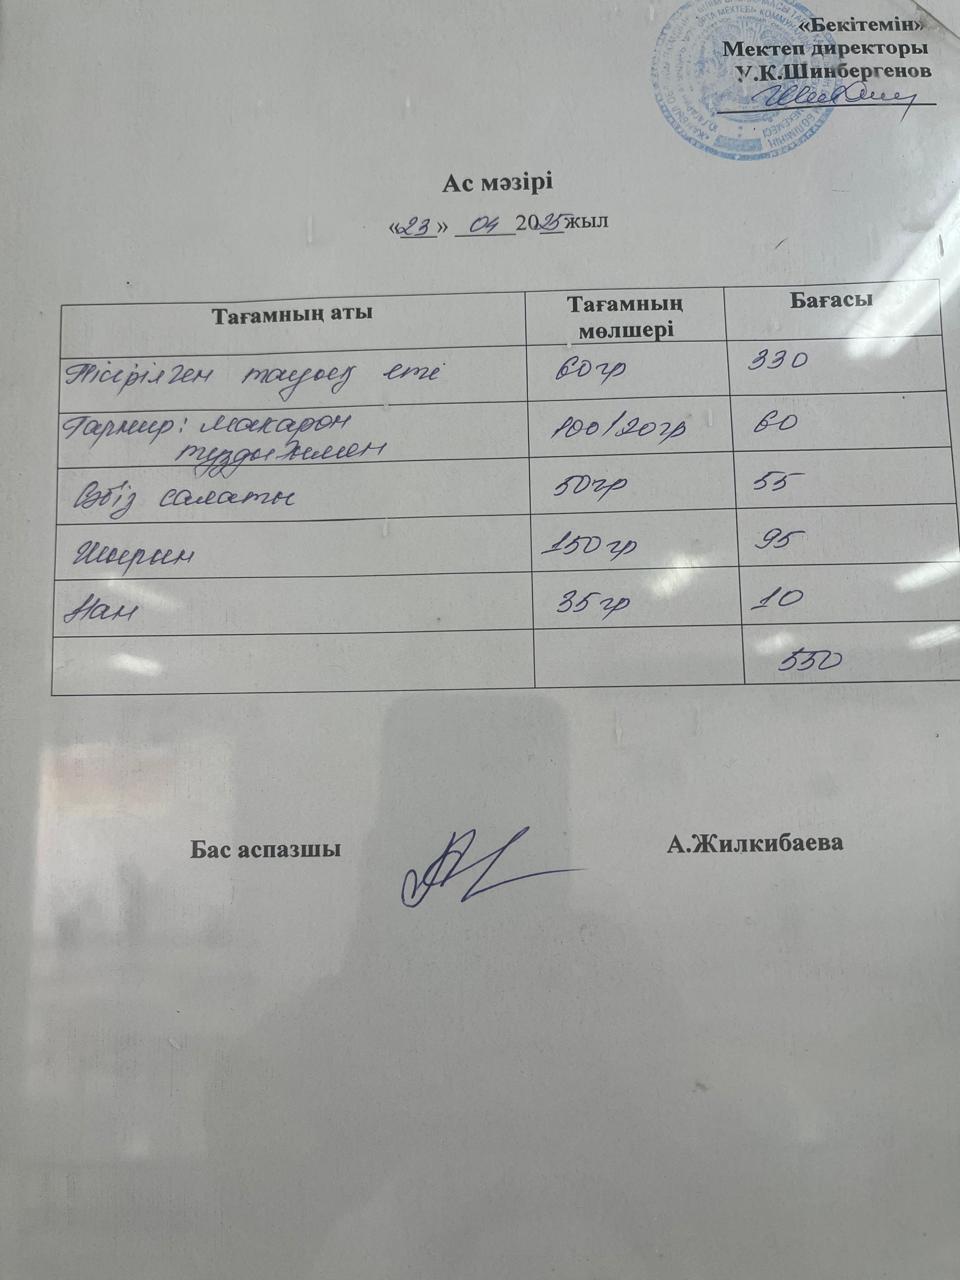 «Бекітемін»
Мектеп директоры
У.К.Шинбергенов
Ас мәзірі
«23» 04 2025 жыл
Тағамның аты Тағамның мөлшері Бағасы
Пісірілген тауық еті 60гр 330
Гарнир: макарон 100/20гр 60
тұздықпен
Сәбіз салаты 50гр 55
Шырын 150гр 95
Нан 35гр 10
550
Бас аспазшы А.Жилкибаева